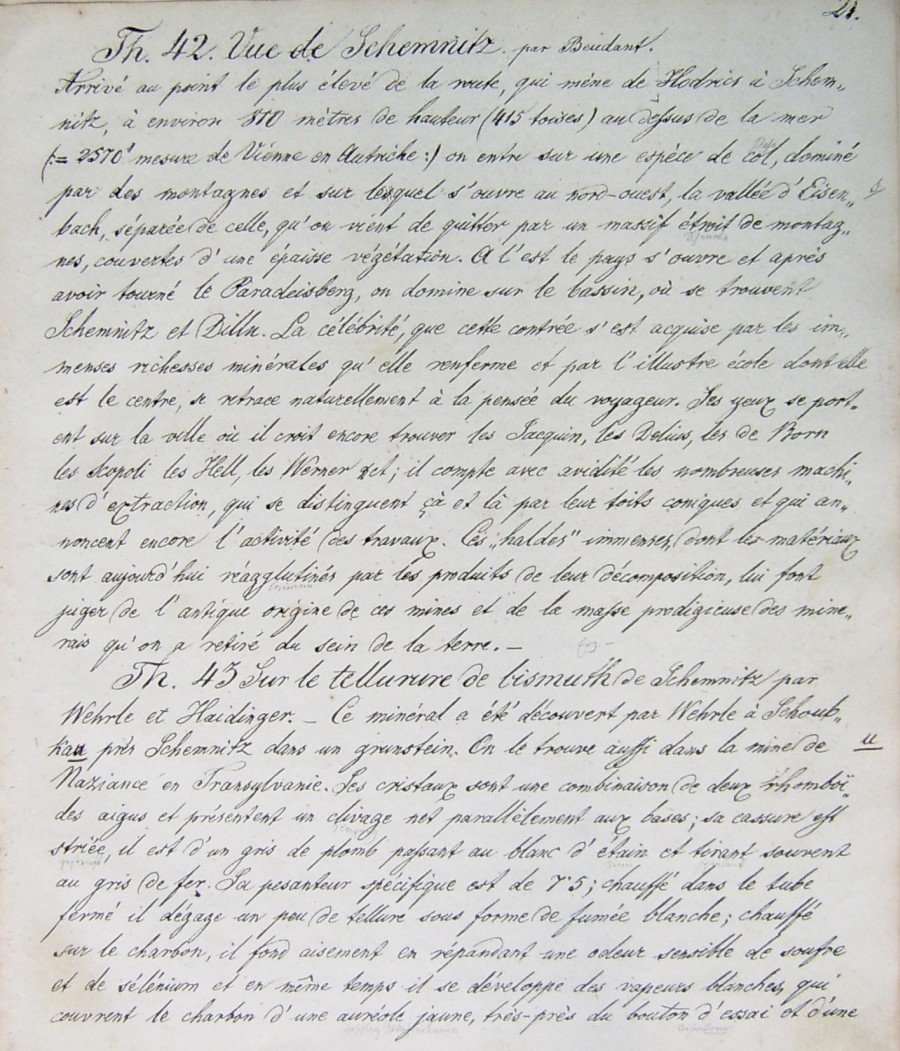 21.
Th. 42. Vue de Schemnitz. par Beudant.
Arrivé au point le plus élevé de la route, qui mène de Hodrics à Schem„
nitz, à environ 810 mètres de hauteur (415 toises) au dessus de la mer
(:= 2570' mesure de Vienne en Autriche:) on entre sur une espèce de col, dominé
par des montagnes et sur lesquel s'ouvre au nord-ouest, la vallée d'Eisen„
bach, séparée de celle, qu'on vient de quitter par un massif étroit de montag„
nes, couvertes d'une épaisse végétation. A l'est le pays s'ouvre et après
avoir tourné le Paradeisberg, on domine sur le bassin, où se trouvent
Schemnitz et Dilln. La célébrité, que cette contrée s'est acquise par les im„
menses richesses minérales qu'elle renferme et par l'illustre école dont elle
est le centre, se retrace naturellement à la pensée du voyageur. Ses yeux se port„
ent sur la ville où il croit encore trouver les Jacquin, les Delius, les de Born
les Scopoli les Hell, les Werner ect; il compte avec avidité les nombreuses machi„
nes d'extraction, qui se distinguent çà et là par leur toits coniques et qui an„
noncent encore l'activité des travaux. Ces „haldes" immenses, dont les matériaux
sont aujourd'hui réagglutinés par les produits de leur décomposition, lui font
juger de l'antique origine de ces mines et de la masse prodigieuse des mine„
rais qu'on a retiré du sein de la terre. —
Th. 43 Sur le tellurure de bismuth de Schemnitz par
Wehrle et Haidinger. — Ce minéral a été découvert par Wehrle à Schoub„
kau près Schemnitz dans un grunstein. On le trouve aussi dans la mine de u
Naziance en Transylvanie. Ses cristaux sont une combinaison de deux rhomboï„
des aigus et présentent un clivage net parallèlement aux bases; sa cassure est
striée, il est d'un gris de plomb passant au blanc d'étain et tirant souvent
au gris de fer. Sa pesanteur spécifique est de 7·5; chauffé dans le tube
fermé il dégage un peu de tellure sous forme de fumée blanche; chauffé
sur le charbon, il fond aisement en répandant une odeur sensible de soufre
et de sélénium et en même temps il se développe des vapeurs blanches, qui
couvrent le charbon d'une auréole jaune, très-près du bouton d'essai et d'une